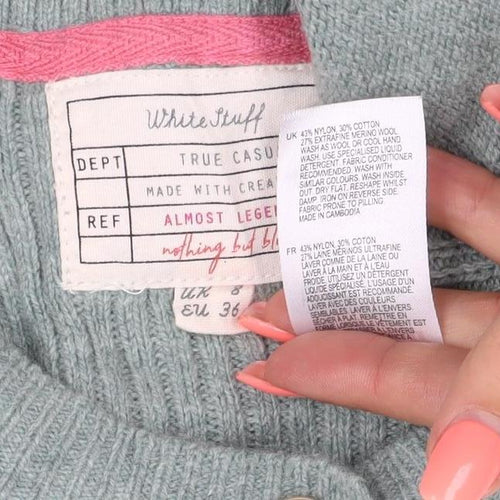 White Stuff
DEPT
TRUE CASU
MADE WITH CREA
REF
ALMOST LEGE
nothing but bl
UK 8
EU 36
UK 43% NYLON, 30% COTTON
27% EXTRAFINE MERINO WOOL
WASH AS WOOL OR COOL HAND
WASH. USE SPECIALISED LIQUID
DETERGENT. FABRIC CONDITIONER
RECOMMENDED. WASH WITH
SIMILAR COLOURS. WASH INSIDE
OUT. DRY FLAT. RESHAPE WHILST
DAMP. IRON ON REVERSE SIDE.
FABRIC PRONE TO PILLING.
MADE IN CAMBODIA
FR 43% NYLON, 30% COTON
27% LAINE MÉRINOS ULTRAFINE
LAVER COMME DE LA LAINE OU
LAVER À LA MAIN ET À L'EAU
FROIDE. UTILISEZ UN DÉTERGENT
LIQUIDE SPÉCIALISÉ. L'USAGE D'UN
ADOUCISSANT EST RECOMMANDÉ.
LAVER AVEC DES COULEURS
SEMBLABLES. LAVER À L'ENVERS.
SÉCHER À PLAT. REMETTRE EN
FORME LORSQUE LE VÊTEMENT EST